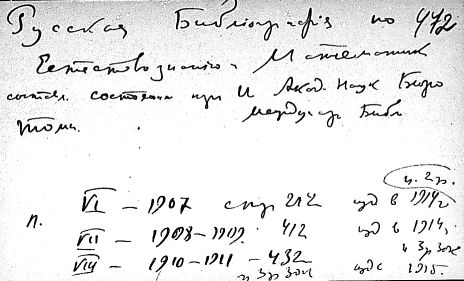 Русская Библиография по 472
Естествознанию и Математик
составл. состоящим при И Акад. Наук Бюро
Междунар Библ
томи.
ц. 2 р.
п. VI – 1907 стр 212 изд в 1914 г
VII – 1908–1909. 412 изд в 1914 г.
ц 3 р 30 к
VIII – 1910–1911 – 432 изд 1915.
ц 3 р 30 к